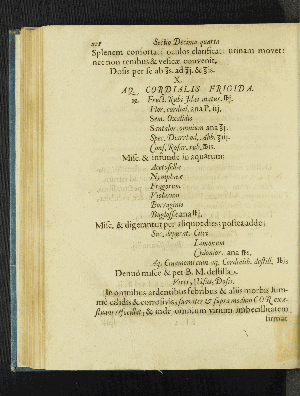 Sectio Decima quarta
Splenem confortat: oculos clarificat: urinam movet:
nec non renibus & vesicæ convenit.
Dosis per se ab ʒs. ad ʒj. &
X.
AQ. CORDIALIS FRIGIDA.
Fruct. Rubi Idæi matur.
Flor. cordial. ana P. iij.
Sem. Oxalidis
Santalor. omnium ana ʒj.
Spec. Diarrhod. Abb. ʒiij.
Cons. Rosar. rub.
Misc. & infunde in aquarum:
Acetosellæ
Nymphææ
Fragorum
Violarum
Borraginis
Buglossæ ana
Misc. & digerantur per aliquot dies; postea adde;
Suc. depurat. Citri
Limonum
Cydonior. ana
Aq. Cinamomi cum aq. Cordialib. destill.
Denuò misce & per B. M. destilla.
Vires, Usus, Dosis.
In omnibus ardentibus febribus & aliis morbis summè
calidis & corrosivis, &
& inde omnium virium imbecillitatem